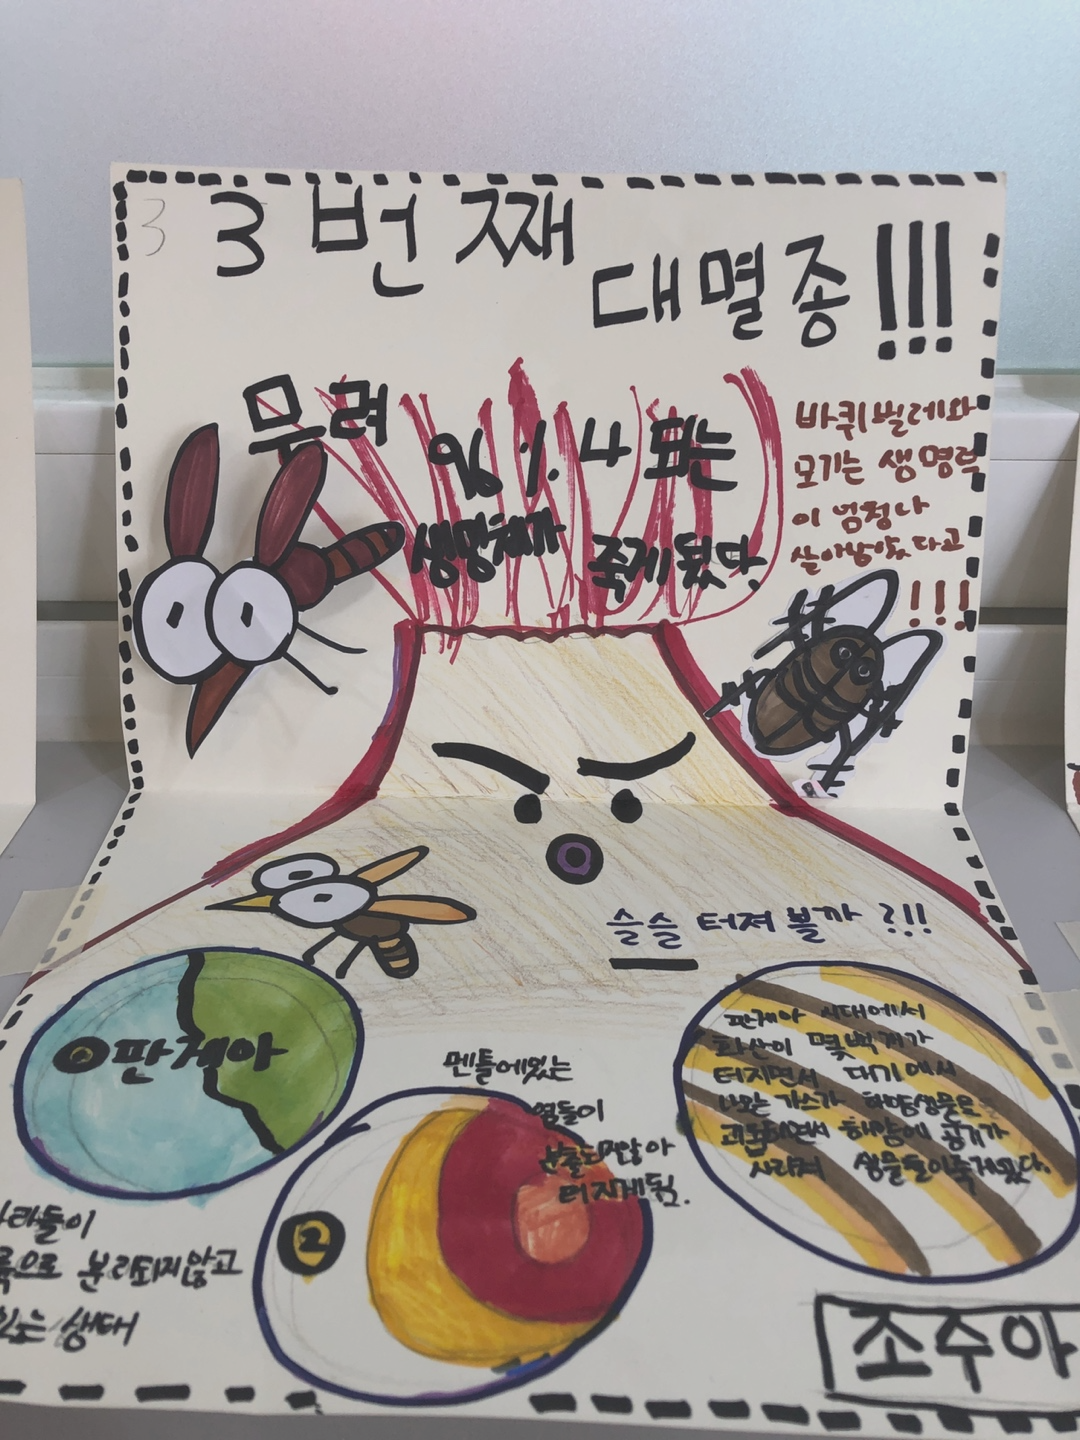 3
3번째
대멸종!!!
무려
96%나 되는
생명체가 죽게됬다.
바퀴벌레와
모기는 생명력
이 엄청나
살아남았다고
!!!
슬슬 터져 볼까?!!
판게아
판게아 시대에서
화산이 몇백개가
터지면서 대기에서
나오는 가스가 해양생물을
괴롭히면서 해양에 공기가
사라져 생물들이죽게됬다.
멘틀에있는
열들이
분출되지않아
터지게됬.
2
으로 분리되지않고
있는 생태
조주아